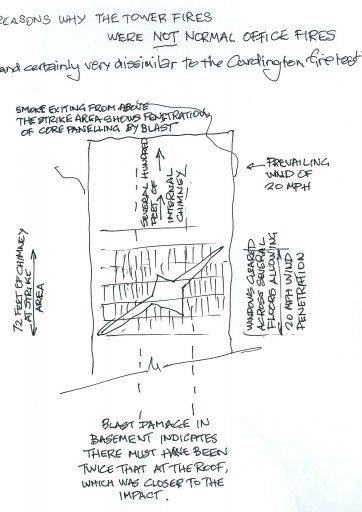 REASONS WHY THE TOWER FIRES
WERE NOT NORMAL OFFICE FIRES
and certainly very dissimilar to the Cardington fire test
SMOKE EXITING FROM ABOVE
THE STRIKE AREA SHOWS PENETRATION
OF CORE PANELLING BY BLAST
SEVERAL HUNDRED
FEET OF
INTERNAL
CHIMNEY
PREVAILING
WIND OF
20 MPH
72 FEET OF CHIMNEY
AT STRIKE
AREA
WINDOWS CLEARED
ACROSS SEVERAL
FLOORS ALLOWING
20 MPH WIND
PENETRATION
BLAST DAMAGE IN
BASEMENT INDICATES
THERE MUST HAVE BEEN
TWICE THAT AT THE ROOF,
WHICH WAS CLOSER TO THE
IMPACT.